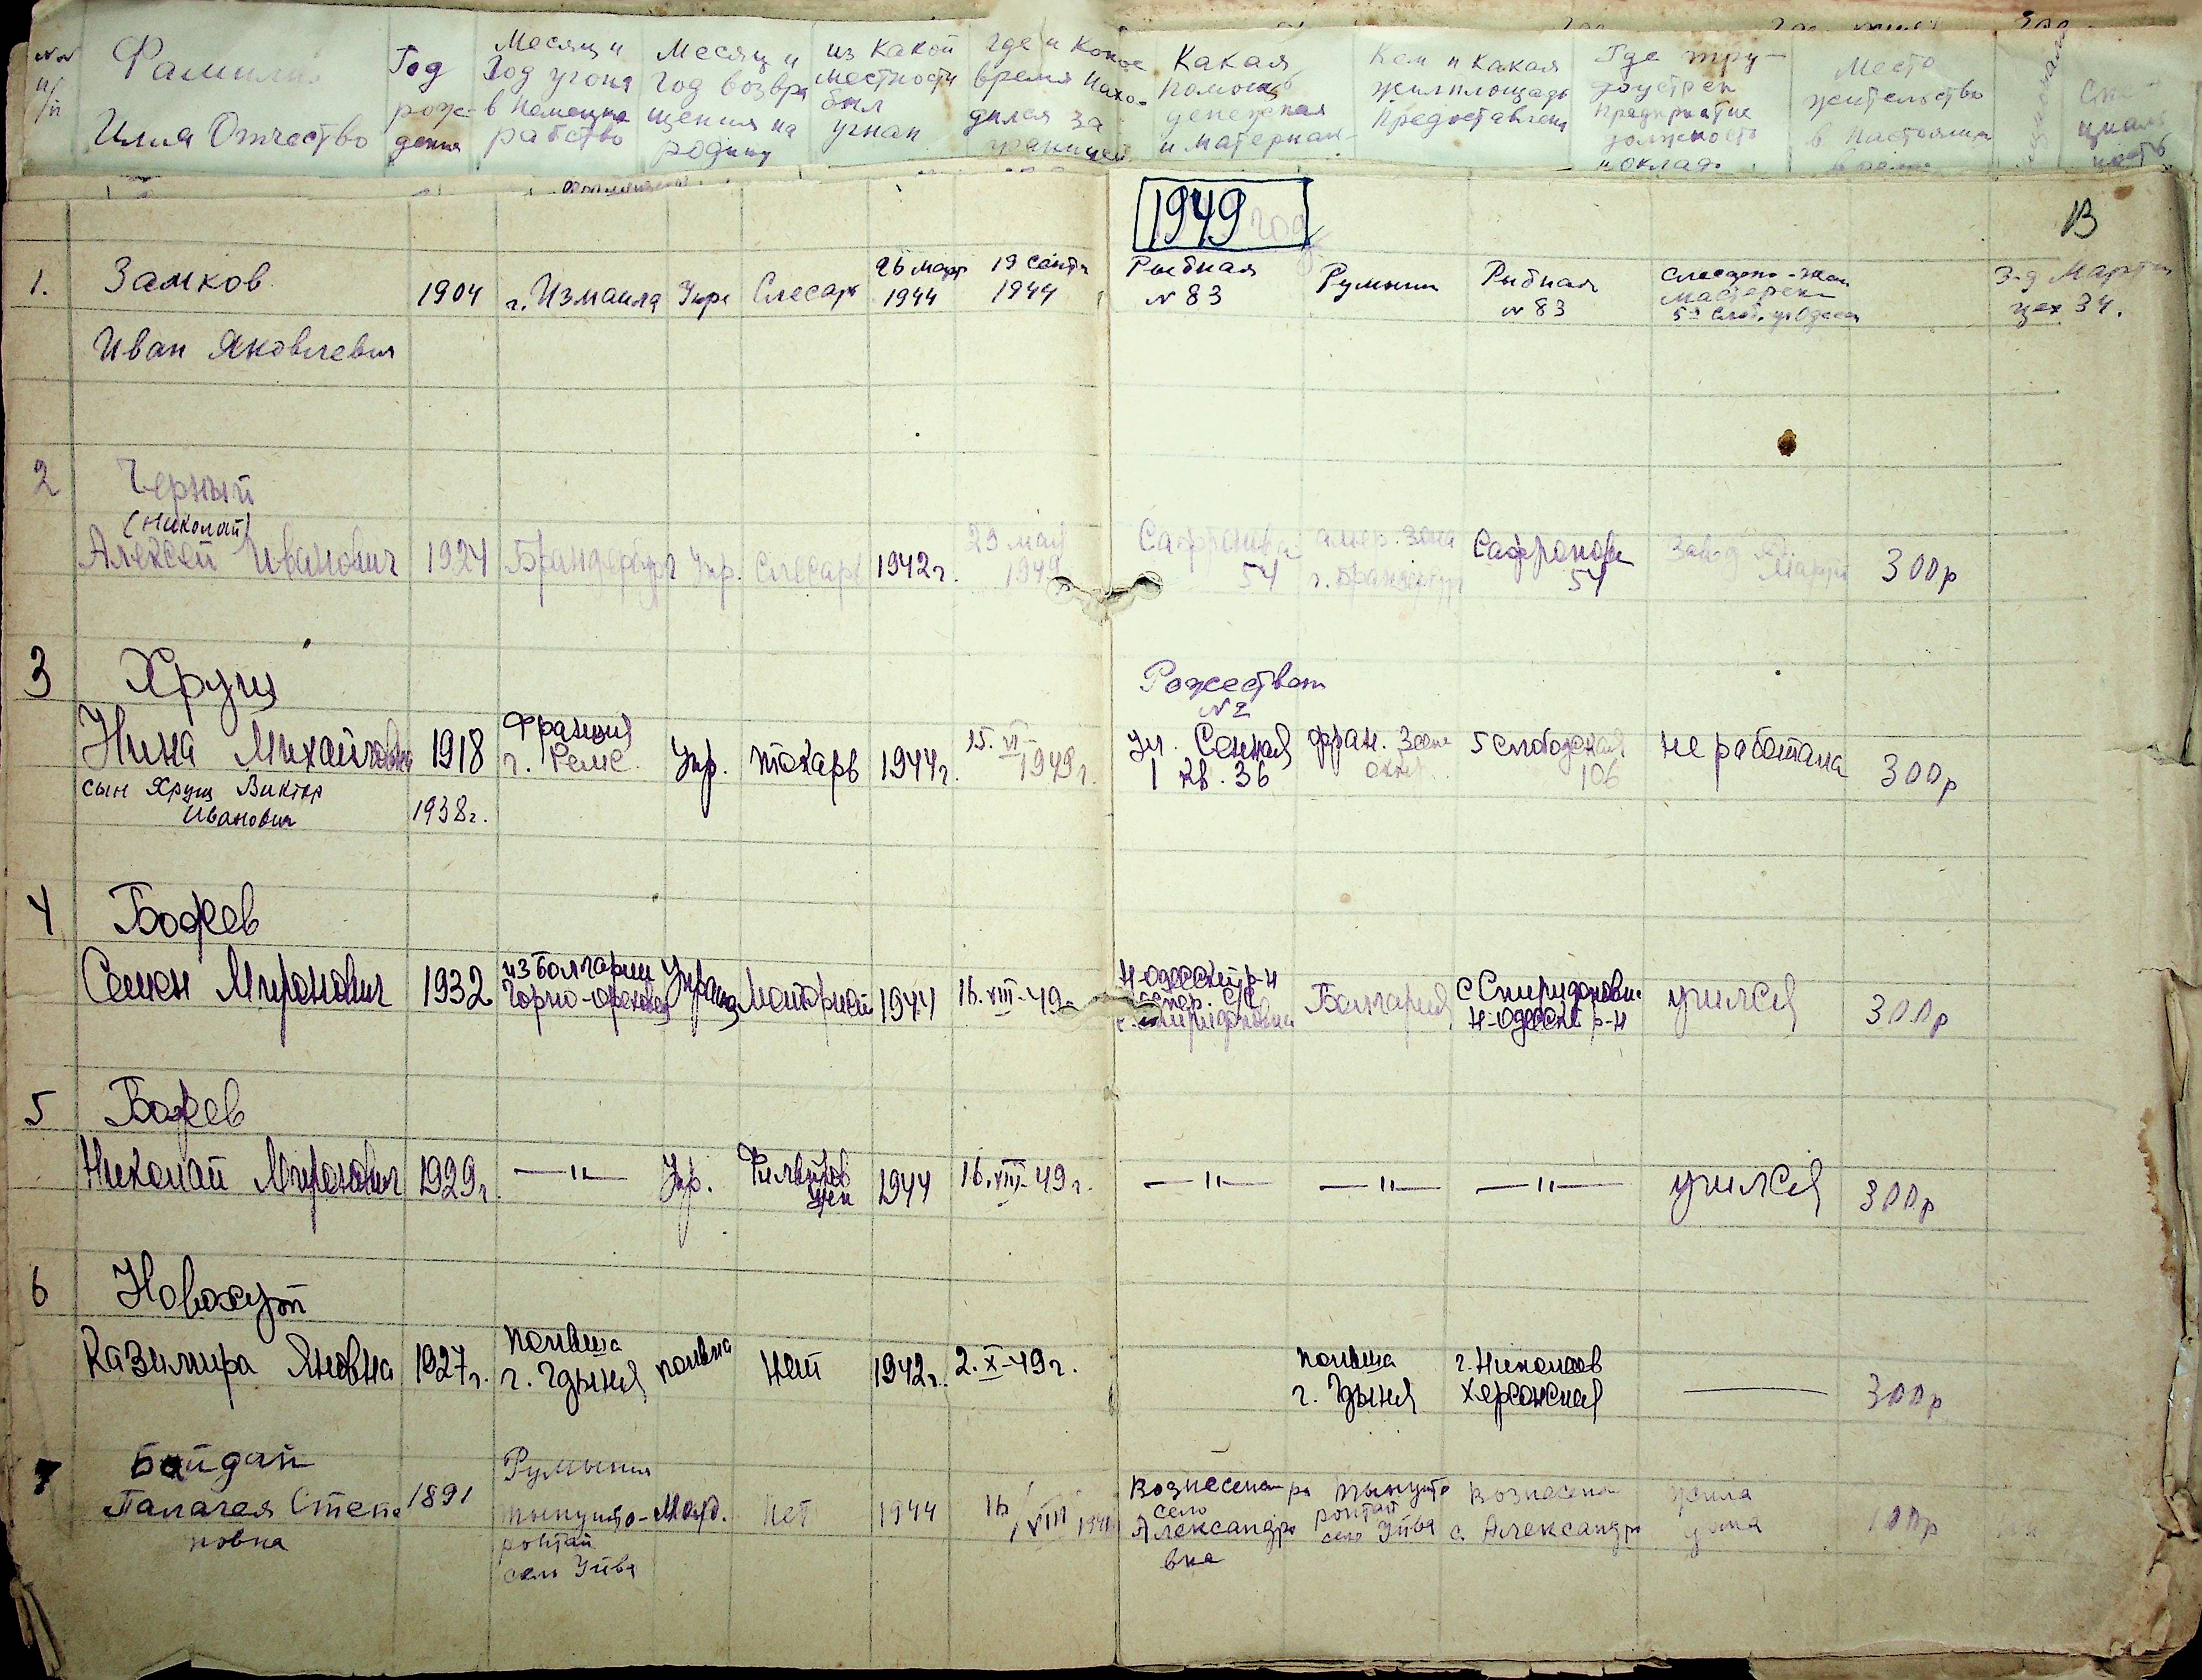 №№ п/п
Фамилия Имя Отчество
Год рождения
Месяц и Год угона в Немецко рабство
Месяц и Год возвращения на родину
из какой местности был угнан
где и какое время находился за границей
Какая помощь денежная и материал-
Кем и какая жилплощадь предоставлена
Где трудоустроен предприятие должность и оклад.
Место жительства в настоящее
Специальность
1949 год
13
1. Замков
Иван Яковлевич
1904 г. Измаила Укр Слесарь 26 март 1944 19 сент 1944 Рыбная № 83 Румыни Рыбная № 83
З-д Марти цех 34.
2 Черный
(Николай)
Алексей Иванович 1924 Брандербург Укр. слесарь 1942 г. 29 мая 1949 Сафронова 54 амер. зона г. Брандербург Сафронова 54 Завод Марти 300 р
3 Хрущ
Рождествен
№ 2
Нина Михайловна 1918 Франция г. Реме Укр. токарь 1944 г. 15.VI 1949 г. ул. Сенная 1 кв. 36 фран. зона 5 слободская 106 не работала 300 р
сын Хрущ Виктор
Иванович 1938 г.
4 Божев
Семен Миронович 1932 из Болгарии Горно-Ореховец Украинец 1944 16.VIII-49 г Н-Одесский р-н с. Спиридоновка Болгария с Спиридоновка Н-Одесск р-н учился 300 р
5 Божев
Николай Миронович 1929 г. —"— Укр. 1944 16.VIII-49 г. —"— —"— —"— учился 300 р
6 Новохут
Казимира Яновна 1927 г. польша г. Гдыня полька нет 1942 г. 2.X-49 г. польша г. Гдыня г. Николаев Херсонская —— 300 р
7 Байдан
Палагея Степановна 1891 Румыния Молд. нет 1944 16/VIII Вознесен р село Александровка Вознесен с. Александр жила дома 100 р